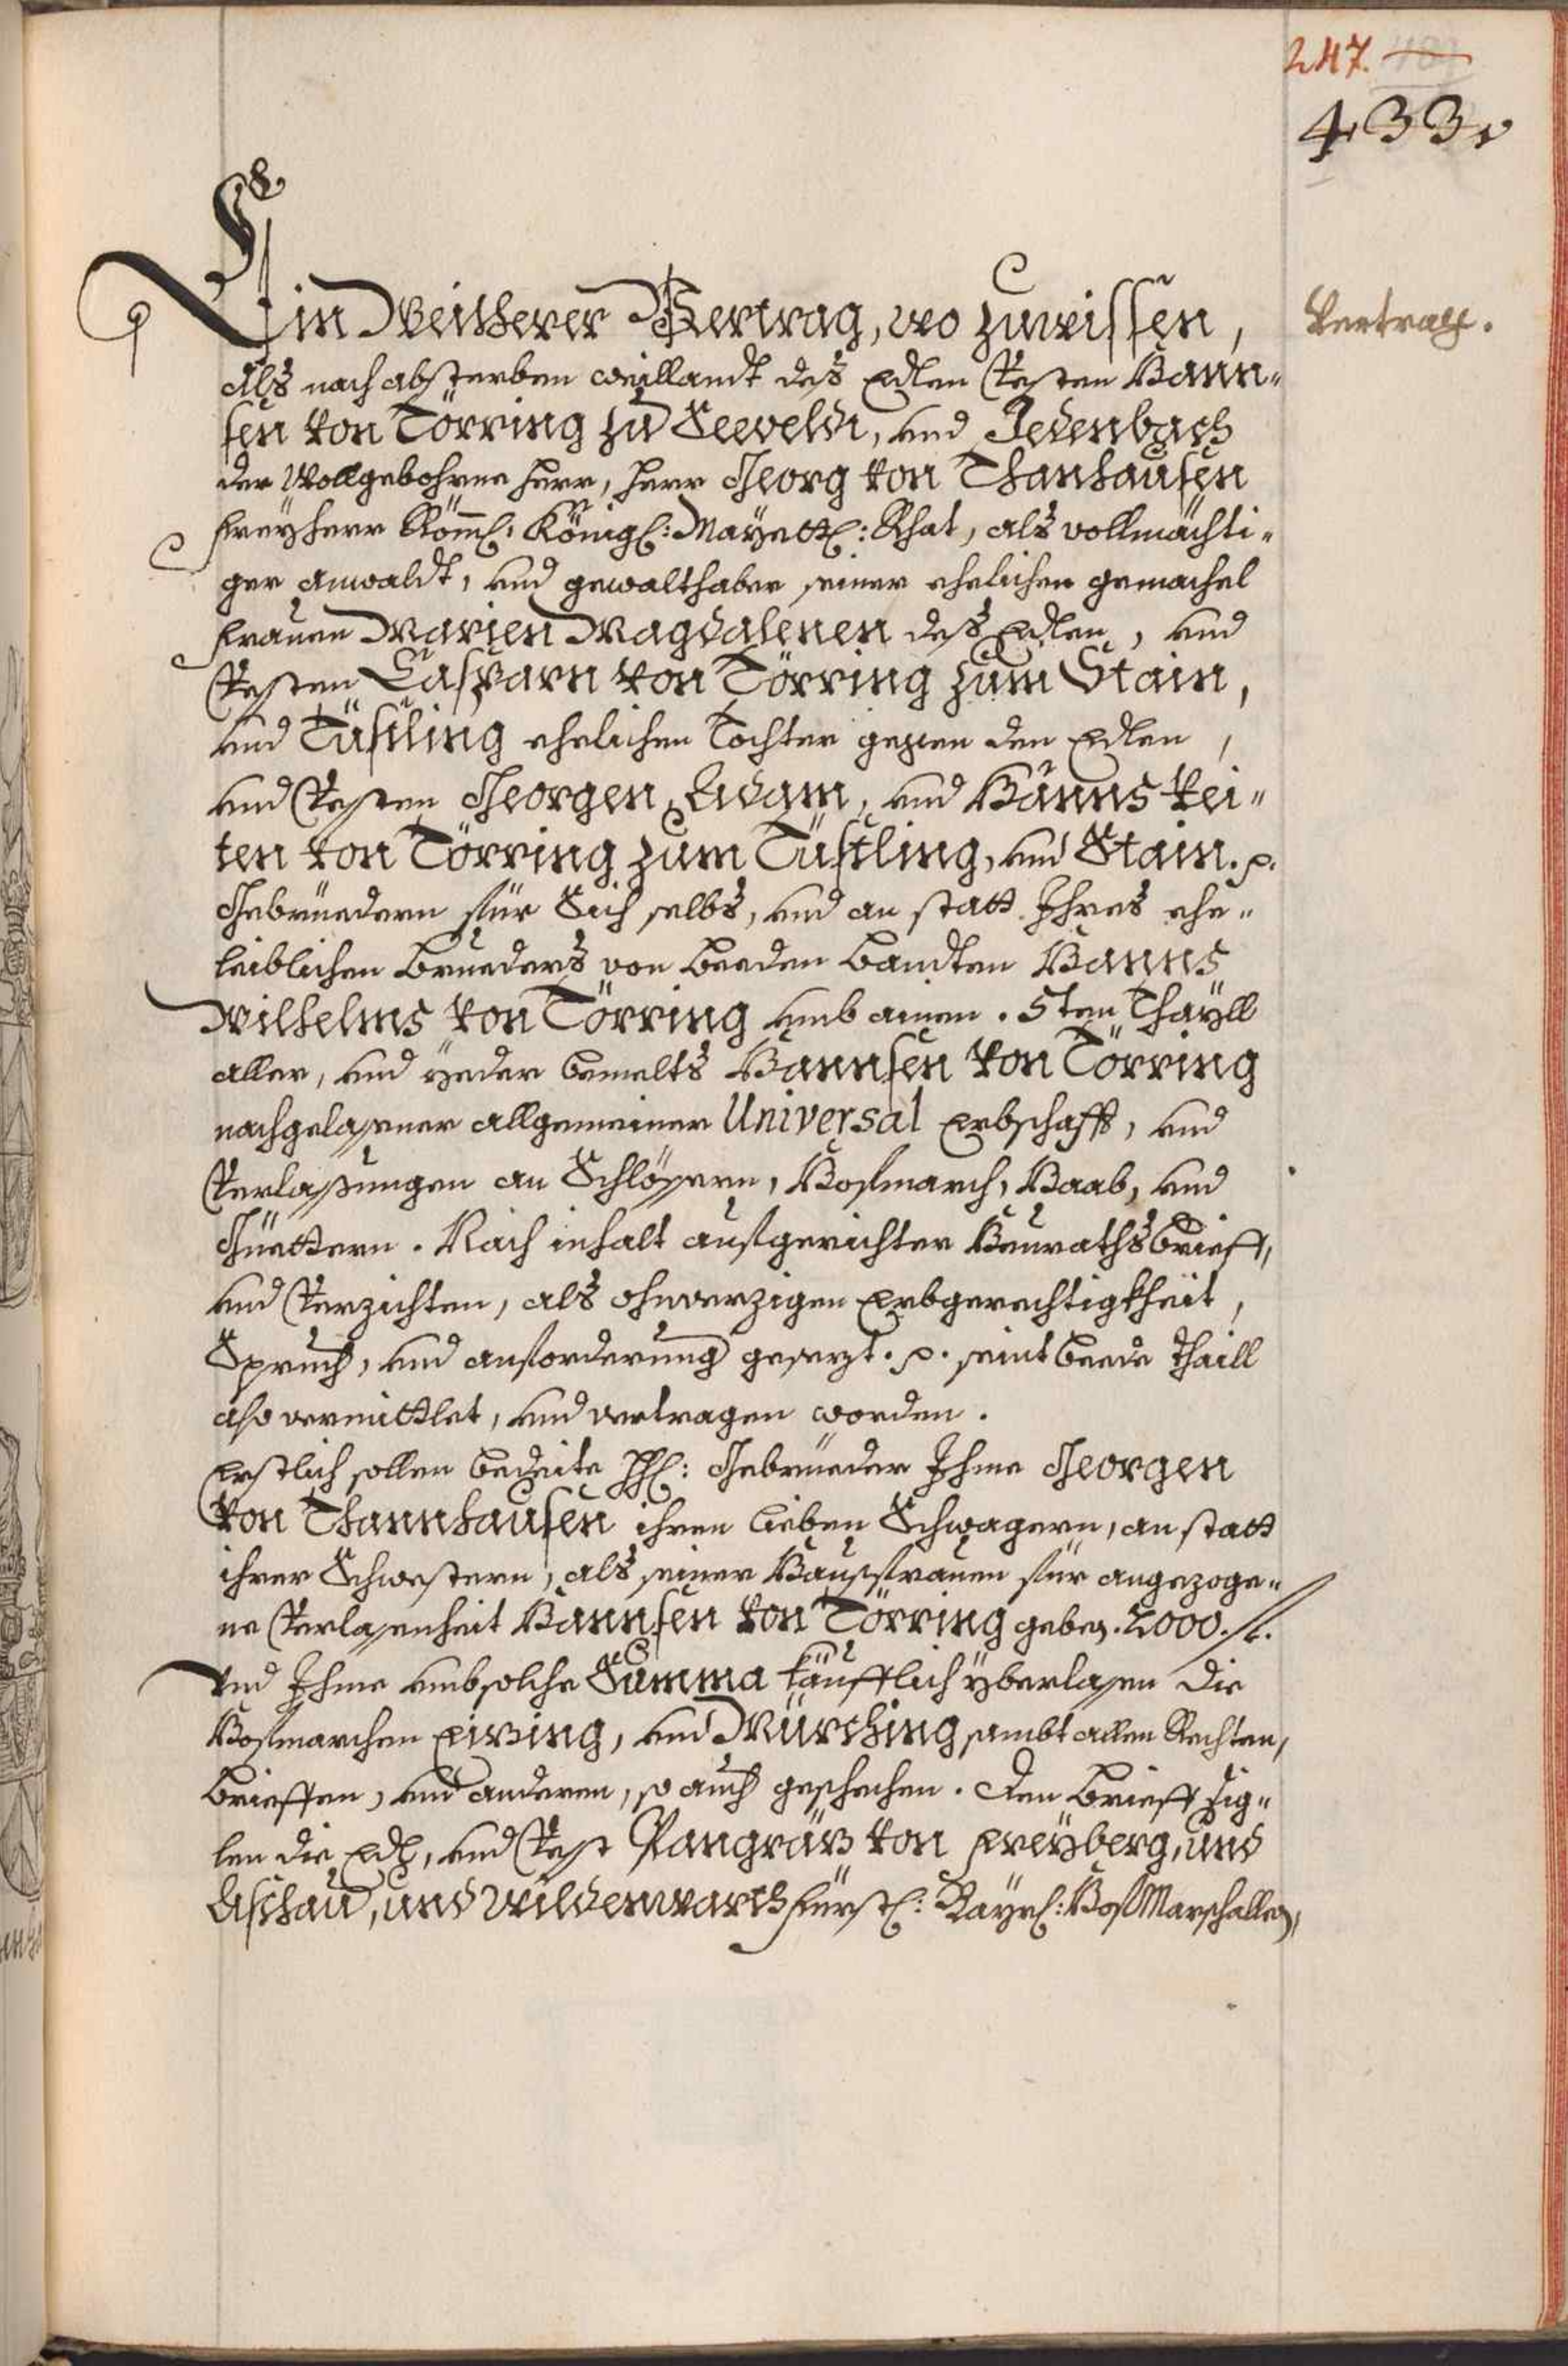 247.
433.
Vertrag.
Ein Weitherer Vertrag, wo zuwissen,
Als nach absterben weillandt des Edlen Vesten Hann-
sen von Törring zu Seeveldt, und Jedenbach
der Wollgebohrne Herr, Herr Georg von Thanhausen
Freyherr Röml: Königl: Mayettl: Rhat, als vollmächti-
ger anwaldt, und gewalthaber seiner ehelichen gemachel
Frauen Marien Magdalenen des Edlen, und
Vesten Casparn von Törring zum Stain,
und Tüsling ehelichen Tochter gegen den Edlen,
und Vesten Georgen, Adam, und Hanns Vei-
ten von Törring zum Tüstling, und Stain. p.
Gebruedern für Sich selbs, und an statt Ihres ehe-
leiblichen Brueders von beeden bandten Hanns
Wilhelms von Törring umb ainen. 5ten Thayll
aller, und yeder bemelts Hannsen von Törring
nachgelassner allgemeiner Universal Erbschafft, und
Verlassungen an Schlössern, Hofmarch, Haab, und
Güettern. Nach inhalt aufgerichter Heuraths brieff,
und Verzichten, als ohnverzigen Erbgerechtigkheit,
Spruch, und anforderung gesezt. p. seint beede thaill
also vermittlet, und vertragen worden.
Erstlich sollen bedeite HH: Gebrueder Ihme Georgen
von Thannhausen ihren lieben Schwagern, an statt
ihrer Schwestern, als seiner Hausfrauen für angezoge-
ne Verlassenheit Hannsen von Törring geben. 2000. fl.
Und Ihme umb solche Summa käufflich yberlassen die
Hofmarchen Eizing, und Mürching sambt allen Rechten,
brieffen, und anderen, so auch geschechen. Den brieff sig-
len die Edl, und Vest Pangräz von Freyberg, und
Aschau, und Wildenwarth Fürstl: Bayrl: Hof Marschallen,